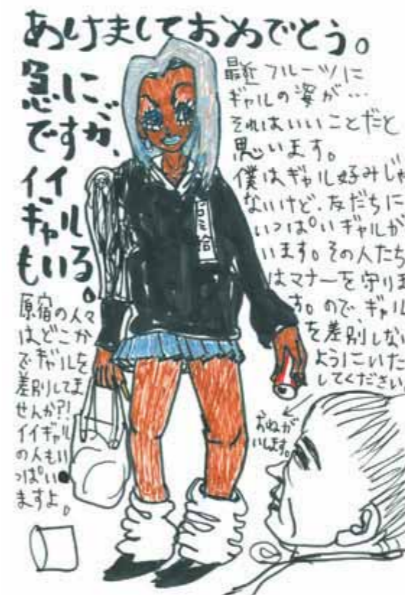 あけましておめでとう。
急に
ですが、
イイ
ギャル
もいる。
最近フルーツに
ギャルの姿が…
それはいいことだと
思います。
僕はギャル好みじゃ
ないけど、友だちに
いっぱいギャルが
います。その人たち
はマナーを守りま
す。ので、ギャル
を差別しない
ようにいた
してください
おねが
いします。
原宿の人々
はどこか
でギャルを
差別してま
せんか?!
イイギャル
の人もい
っぱい
ますよ。